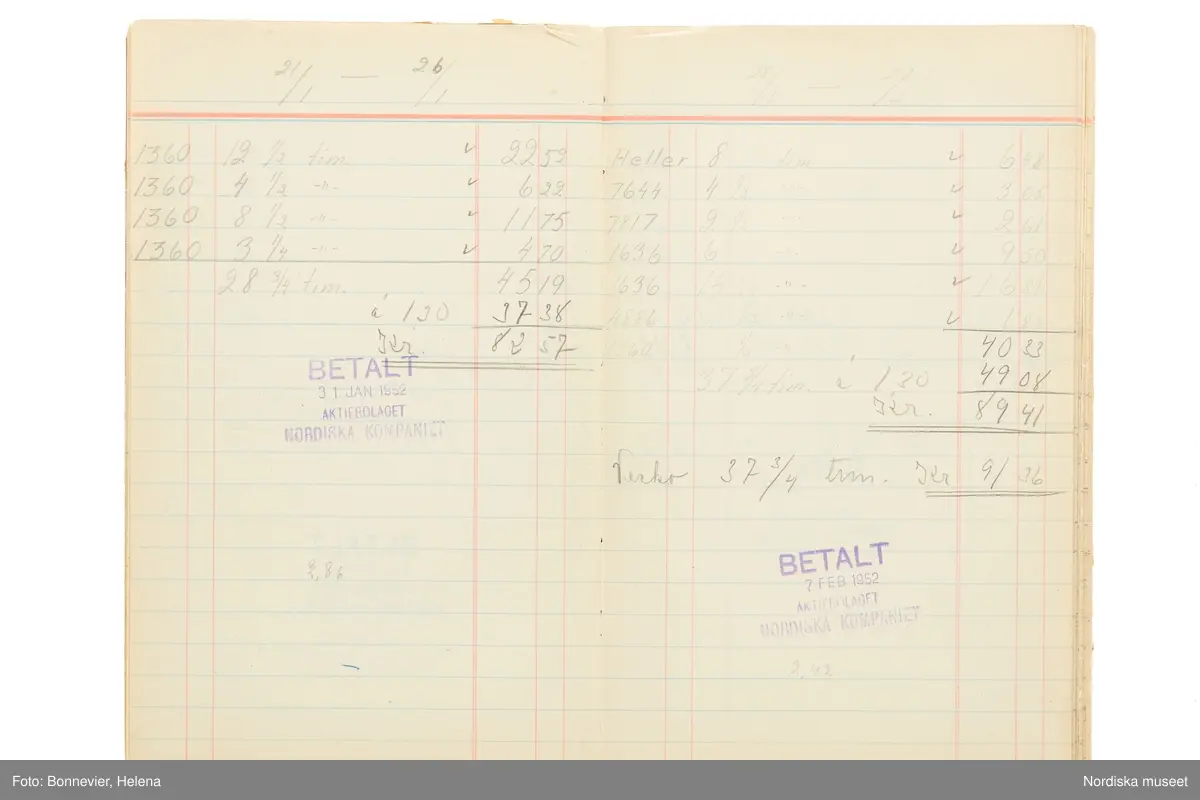 21/1 — 26/1
1360 12 1/2 tim. ✓ 22 52
1360 4 1/2 -"- ✓ 6 22
1360 8 1/2 -"- ✓ 11 75
1360 3 1/4 -"- ✓ 4 70
28 3/4 tim. 45 19
á 130 37 38
Kr. 82 57
BETALT
31 JAN 1952
AKTIEBOLAGET
NORDISKA KOMPANIET
2,86
Heller 8 tim ✓ 6 48
7644 4 1/2 -"- ✓ 3
2 1/2 -"- ✓ 2
1636 6 -"- ✓ 9 50
1636 -"- ✓
-"- ✓ 1
1360
40 33
37 tim. á 130 49 08
Kr. 89 41
37 3/4 tim. Kr 91 36
BETALT
7 FEB 1952
AKTIEBOLAGET
NORDISKA KOMPANIET
2,42
Foto: Bonnevier, Helena
Nordiska museet